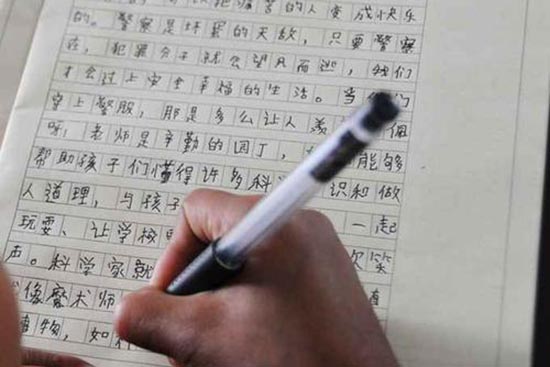 以把痛苦的人变成快乐
的。警察是坏蛋的天敌，只要警察
在，犯罪分子就会望风而逃，我们
才会过上安全幸福的生活。当
穿上警服，那是多么让人羡 佩
呀；老师是辛勤的园丁， 能够
帮助孩子们懂得许多科 识和做
人道理，与孩子 一起
玩耍、让学校 
声。科学家就
像魔术师 
物，如